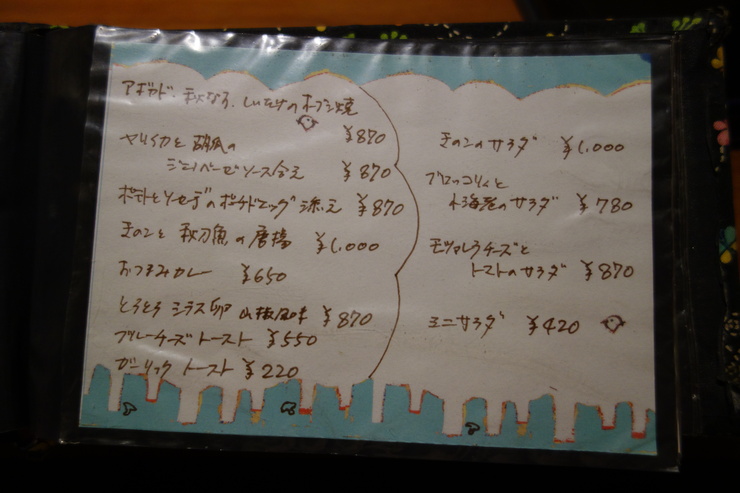 アボカド・秋なす・しいたけのオーブン焼
¥870
ヤリイカと胡瓜の
ジェノベーゼソース合え ¥870
ポテトとソーセージのポーチドエッグ添え ¥870
きのこと秋刀魚の唐揚 ¥1,000
おつまみカレー ¥650
とろとろシラス卵 山椒風味 ¥870
ブルーチーズトースト ¥550
ガーリックトースト ¥220
きのこのサラダ ¥1,000
ブロッコリーと
小海老のサラダ ¥780
モツァレラチーズと
トマトのサラダ ¥870
ミニサラダ ¥420